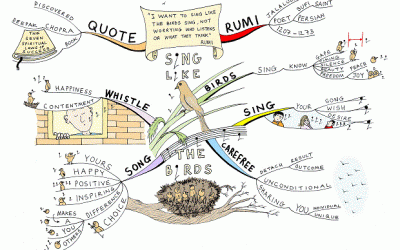 DISCOVERED
DEEPAK CHOPRA
BOOK
THE SEVEN
SPIRITUAL
LAWS OF
SUCCESS
QUOTE
"I WANT TO SING LIKE
THE BIRDS SING, NOT
WORRYING WHO LISTENS
OR WHAT THEY THINK"
RUMI
RUMI
JALALUDDIN
SUFI SAINT
POET PERSIAN
1207-1273
SING
LIKE
THE
BIRDS
BIRDS
SING KNOW
PEACE
JOY
FREEDOM
SING
YOUR
SONG
WISH
DESIRE
CAREFREE
DETACH RESULT
OUTCOME
UNCONDITIONAL
SHARING YOU
INDIVIDUAL
UNIQUE
WHISTLE
HAPPINESS
CONTENTMENT
SONG
YOURS
HAPPY
POSITIVE
INSPIRING
DIFFERENCE
MAKES
A
YOU
OTHERS
CHOICE